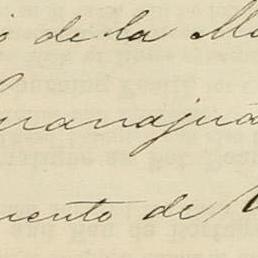 o de la M
uanajua
mento de